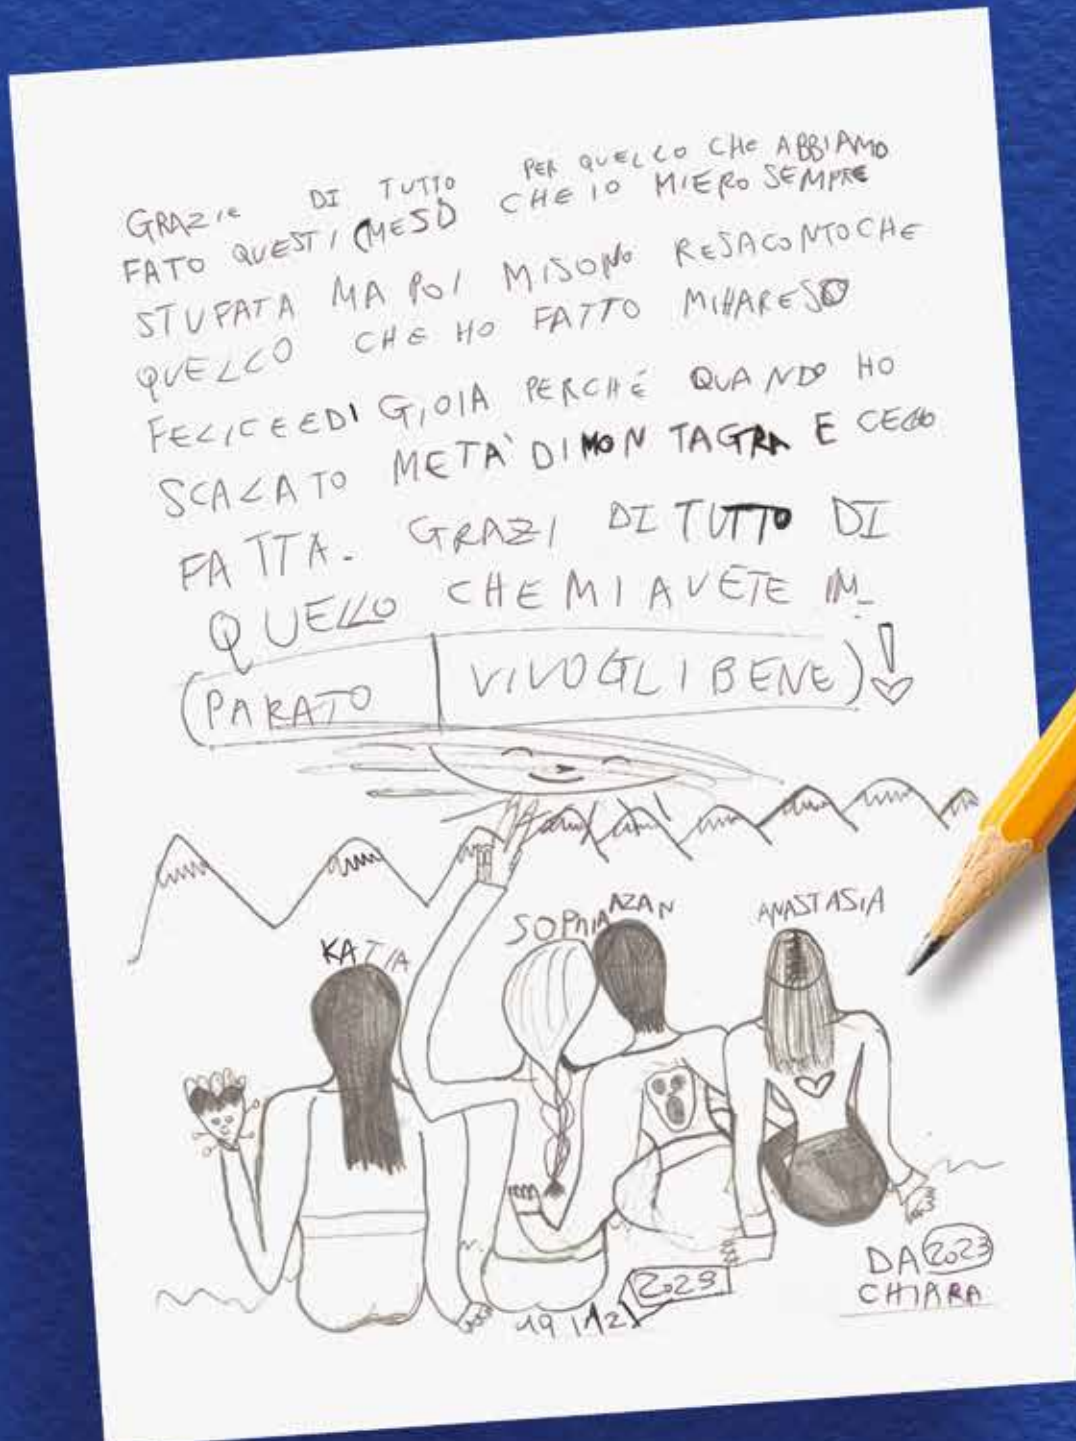 GRAZIE DI TUTTO PER QUELLO CHE ABBIAMO
FATO QUESTI (MESI) CHE IO MIERO SEMPRE
STUFATA MA POI MISONO RESACONTOCHE
QUELLO CHE HO FATTO MIHARESO
FELICEEDI GIOIA PERCHÉ QUANDO HO
SCALATO METÀ DIMONTAGRA E CELHO
FATTA. GRAZI DI TUTTO DI
QUELLO CHEMIAVETE IM_
(PARATO VIVOGLIBENE)!
KATIA SOPHIA AZAN ANASTASIA
19 1121 2023
DA 2023
CHIARA